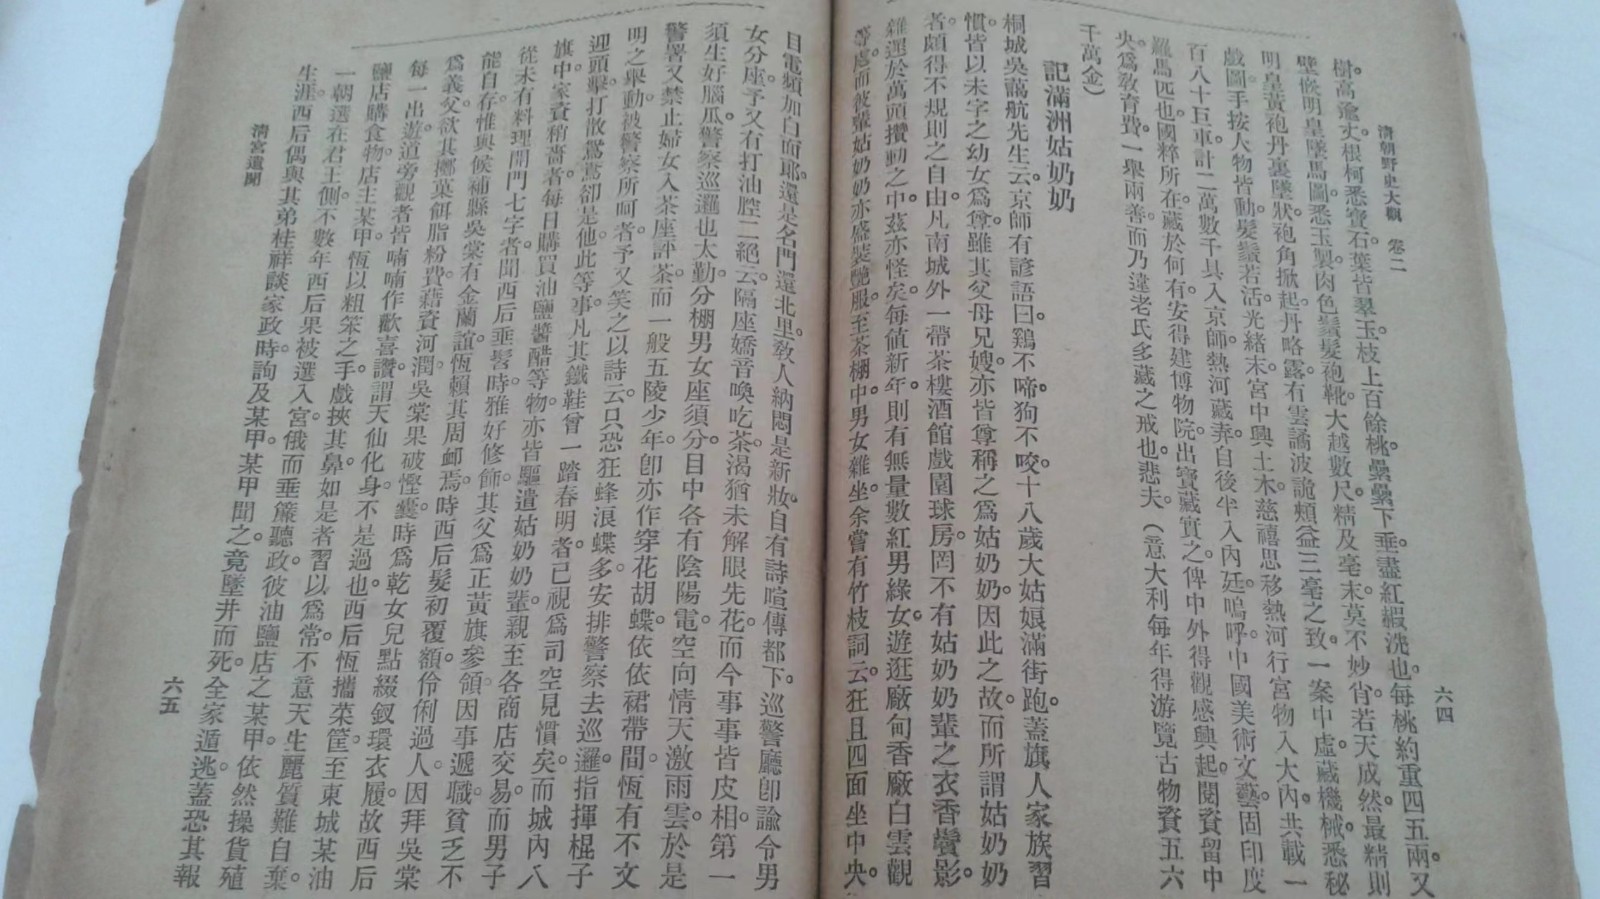 清朝野史大觀 卷二
六四
樹高逾丈根柯悉寶石葉皆翠玉枝上百餘桃纍纍下垂盡紅緞洗也每桃約重四五兩又
壁嵌明皇墜馬圖悉玉製肉色鬚髮袍靴大越數尺精及毫末莫不妙肖若天成然最精則
明皇黃袍丹裏墜狀袍角掀起丹略露有雲譎波詭頰益三毫之致一案中虛藏機械悉秘
戲圖手按人物皆動髮鬚若活光緒末宮中興土木慈禧思移熱河行宮物入大內共載一
百八十巨車計二萬數千具入京師熱河藏弆自後半入內廷嗚呼中國美術文藝固印度
羅馬匹也國粹所在藏於何有安得建博物院出寶藏實之俾中外得觀感興起閱資留中
央爲教育費一舉兩善而乃違老氏多藏之戒也悲夫（意大利每年得游覽古物資五六
千萬金）
記滿洲姑奶奶
桐城吳藹航先生云京師有諺語曰鷄不啼狗不咬十八歲大姑娘滿街跑蓋旗人家族習
慣皆以未字之幼女爲尊雖其父母兄嫂亦皆尊稱之爲姑奶奶因此之故而所謂姑奶奶
者頗得不規則之自由凡南城外一帶茶樓酒館戲園球房罔不有姑奶奶輩之衣香鬢影
雜遝於萬頭攢動之中茲亦怪矣每值新年則有無量數紅男綠女遊逛廠甸香廠白雲觀
等處而彼輩姑奶奶亦盛裝艷服至茶棚中男女雜坐余嘗有竹枝詞云狂且四面坐中央
目電頻加白面耶還是名門還北里教人納悶是新妝自有詩喧傳都下巡警廳卽諭令男
女分座予又有打油腔二絕云隔座嬌音喚吃茶渴猶未解眼先花而今事事皆皮相第一
須生好腦瓜警察巡邏也太勤分棚男女座須分目中各有陰陽電空向情天激雨雲於是
警署又禁止婦女入茶座評茶而一般五陵少年卽亦作穿花胡蝶依依裙帶間恆有不文
明之舉動被警察所呵者予又笑之以詩云只恐狂蜂浪蝶多安排警察去巡邏指揮棍子
迎頭擊打散鴛鴦卻是他此等事凡其鐵鞋曾一踏春明者已視爲司空見慣矣而城內八
旗中家資稍嗇者每日購買油鹽醬醋等物亦皆驅遣姑奶奶輩親至各商店交易而男子
從未有料理開門七字者聞西后垂髫時雅好修飾其父爲正黃旗參領因事遞職貧乏不
能自存惟與候補縣吳棠有金蘭誼恆賴其周卹焉時西后髮初覆額伶俐過人因拜吳棠
爲義父欲其擲菓餌脂粉費藉資河潤吳棠果破慳囊時爲乾女兒點綴釵環衣履故西后
每一出遊道旁觀者皆喃喃作歡喜讚謂天仙化身不是過也西后恆攜菜筐至東城某油
鹽店購食物店主某甲恆以粗笨之手戲挾其鼻如是者習以爲常不意天生麗質難自棄
一朝選在君王側不數年西后果被選入宮俄而垂簾聽政彼油鹽店之某甲依然操貨殖
生涯西后偶與其弟桂祥談家政時詢及某甲某甲聞之竟墜井而死全家遁逃蓋恐其報
清宮遺聞
六五